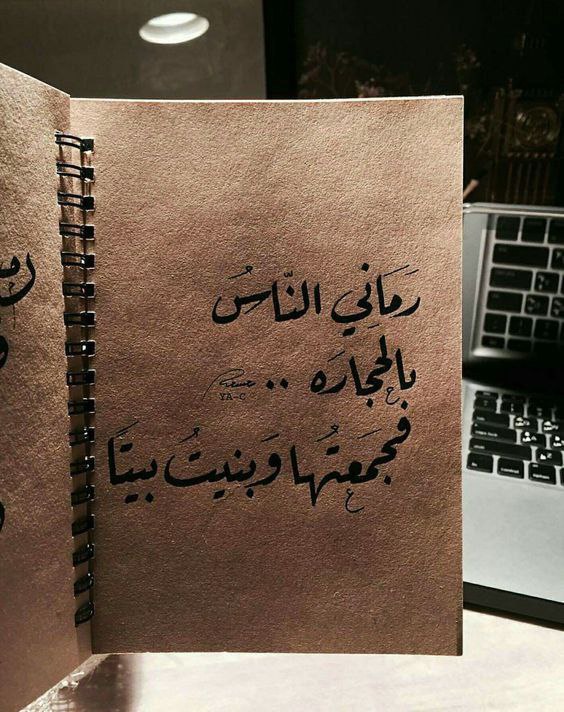 رَمَانِي النَّاسُ
بالحجارَه ..
YA-C
فجمَعتُها وَبنيتُ بيتًا